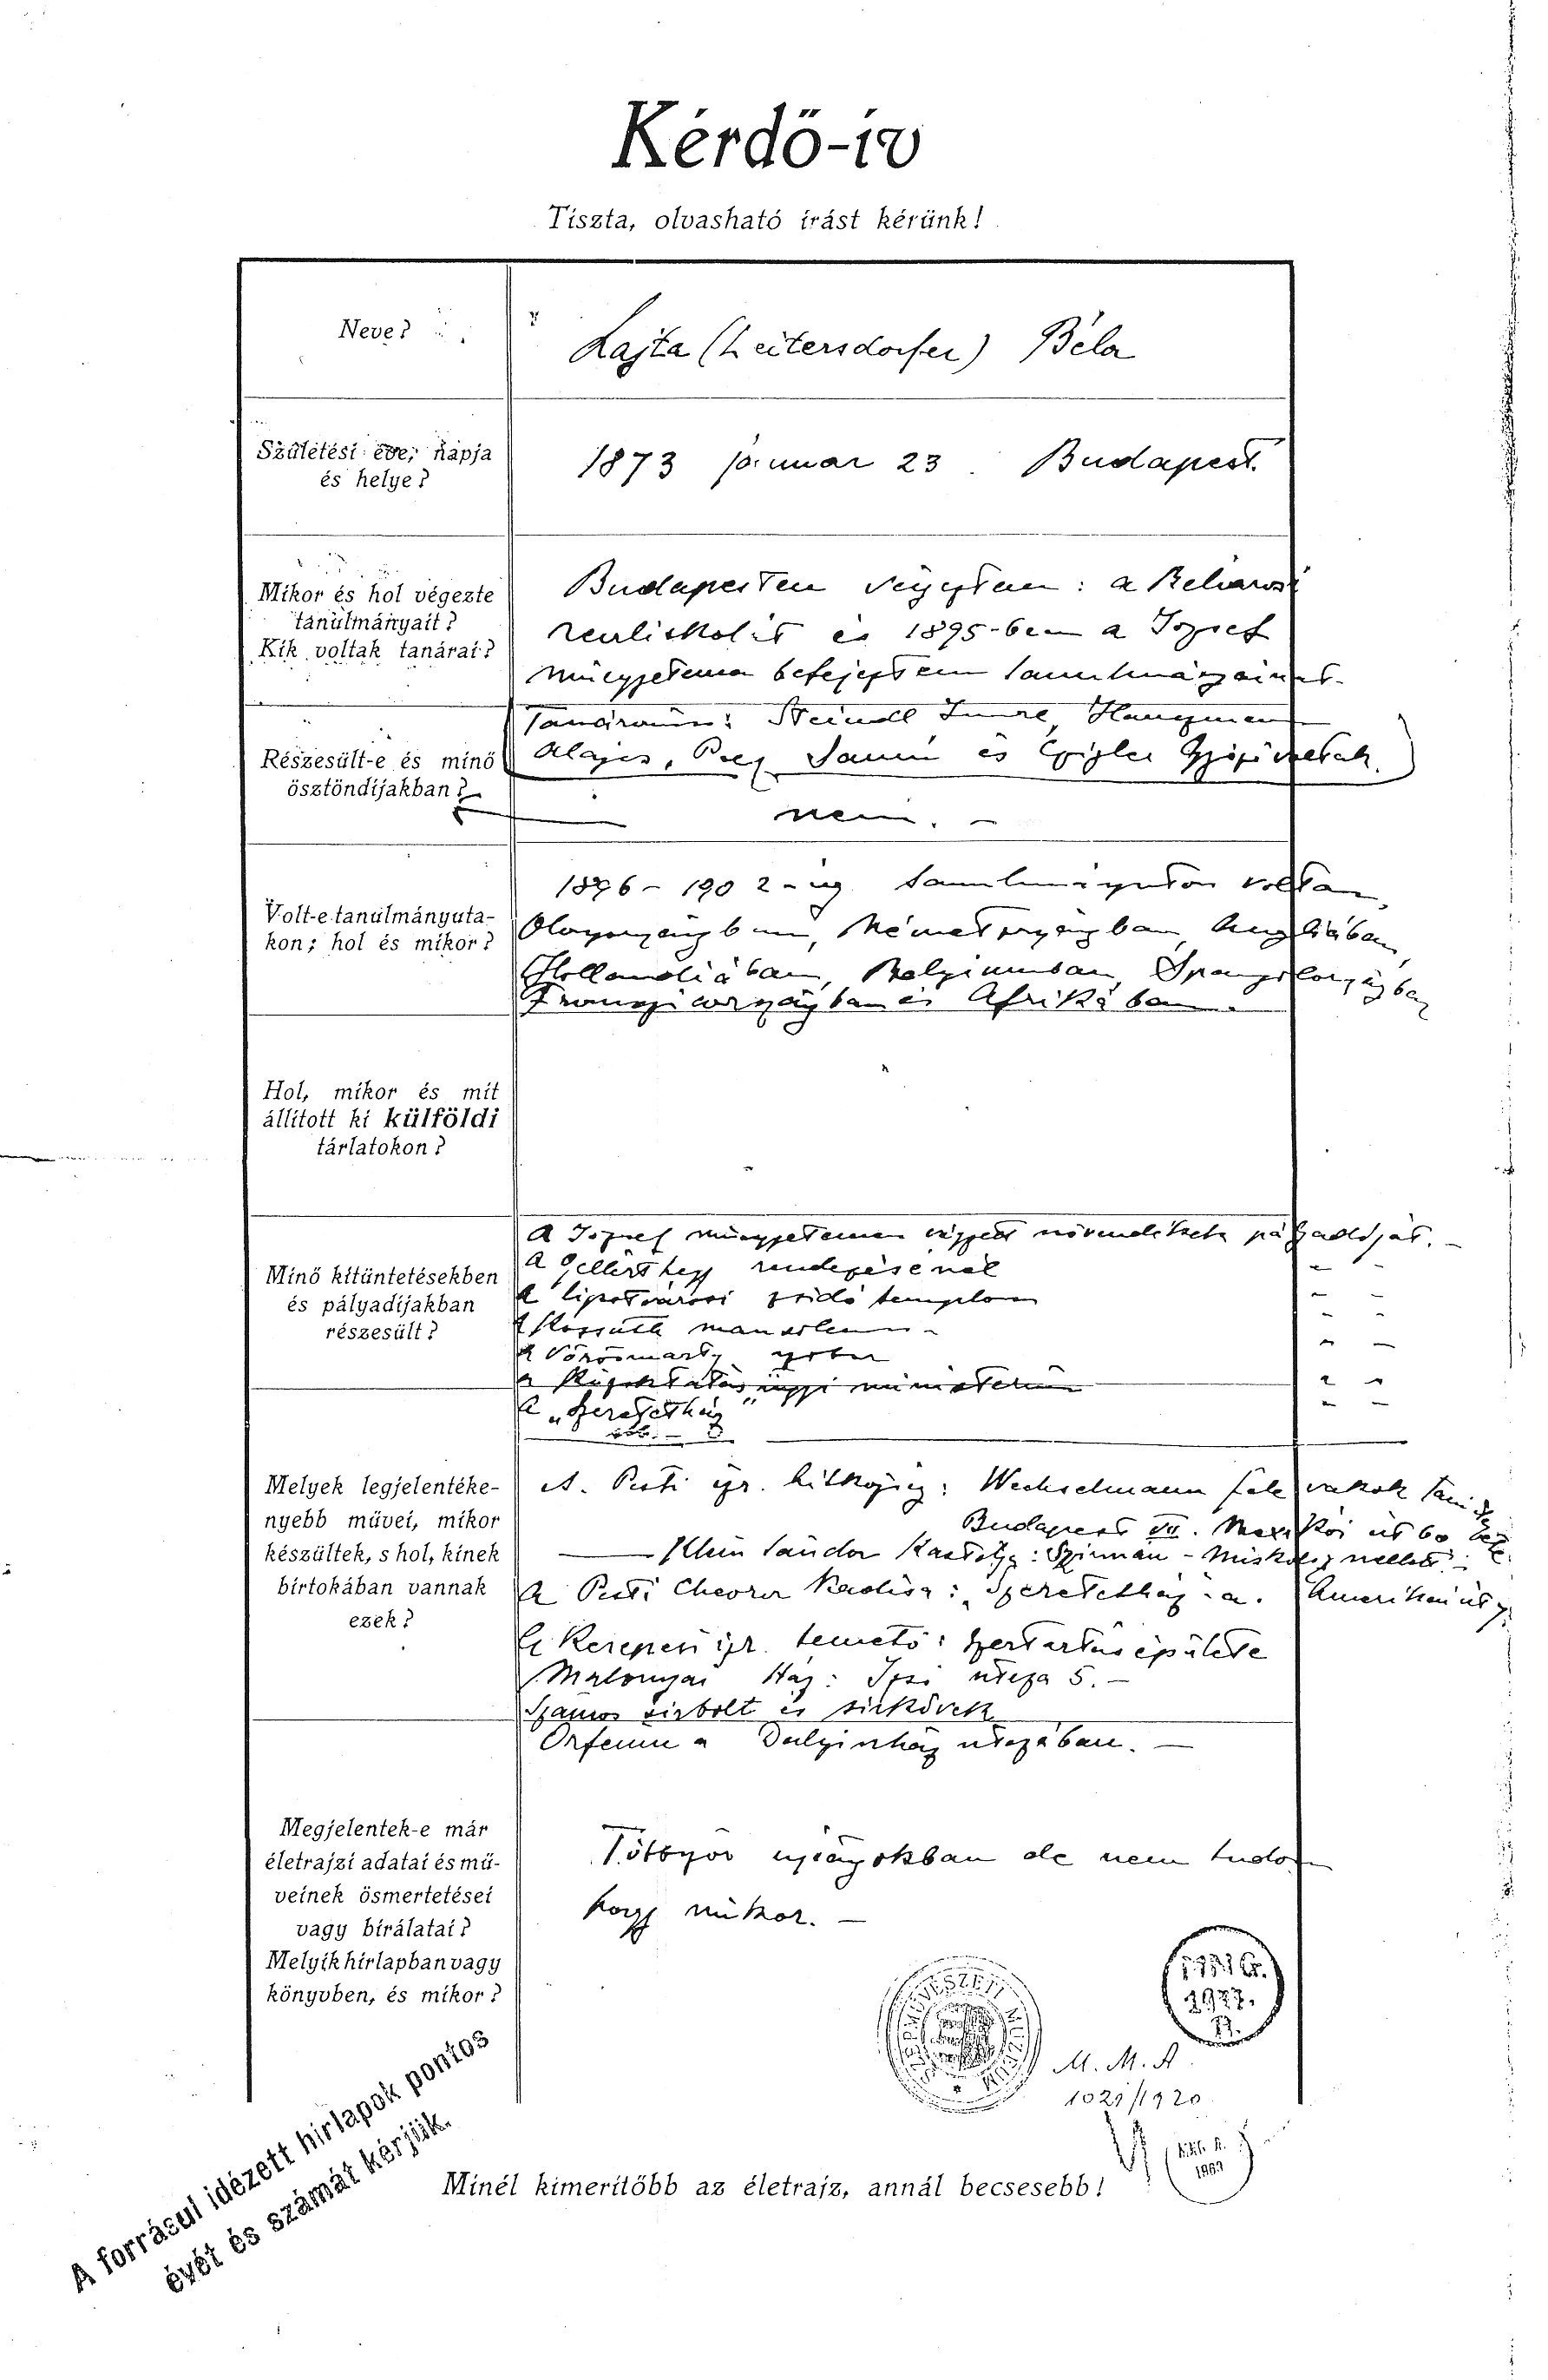 Kérdő-ív
Tiszta, olvasható írást kérünk!
Neve?
Lajta (Leitersdorfer) Béla
Születési éve, napja
és helye?
1873 január 23. Budapest.
Mikor és hol végezte
tanulmányait?
Kik voltak tanárai?
Budapesten végeztem: a Belvárosi
reáliskolát és 1895-ben a József
műegyetemen befejeztem tanulmányaimat.
Tanáraim: Steindl Imre, Hauszmann
Alajos, Pecz Samu és Czigler Győző voltak.
Részesült-e és minő
ösztöndíjakban?
nem. —
Volt-e tanulmányuta-
kon; hol és mikor?
1896 - 1902 - ig tanulmányúton voltam,
Olaszországban, Németországban, Angliában,
Hollandiában, Belgiumban, Spanyolországban
Franciaországban és Afrikában.
Hol, mikor és mit
állított ki külföldi
tárlatokon?
Minő kitüntetésekben
és pályadíjakban
részesült?
A József műegyetemen végzett növendékek pályadíját. —
A Gellérthegy rendezésénél " "
A lipótvárosi zsidó templom " "
A Kossuth mausoleum " "
A Vörösmarty szobor " "
a Közoktatásügyi ministerium " "
A "Szeretetház" " "
Melyek legjelentéke-
nyebb művei, mikor
készültek, s hol, kinek
birtokában vannak
ezek?
A. Pesti izr. hitközség: Wechselmann féle vakok
Budapest VII. Mexikói út 60
Klein Sándor Kastélya: Szirmán - Miskolcz mellett.
A Pesti Chevra Kadisa: "Szeretetház" a. Amerikai út
A Kerepesi izr. temető: szertartás épülete
Malonyai Ház: Izsó utcza 5. —
Számos sírbolt és sírkövek
Orfeum a Dalszinház utczában. —
Megjelentek-e már
életrajzi adatai és mű-
veinek ösmertetései
vagy bírálatai?
Melyik hírlapban vagy
könyvben, és mikor?
Többször ujságokban de nem tudom
hogy mikor. —
M. M. A
1029/1920
A forrásul idézett hírlapok pontos
évét és számát kérjük.
Minél kimerítőbb az életrajz, annál becsesebb!